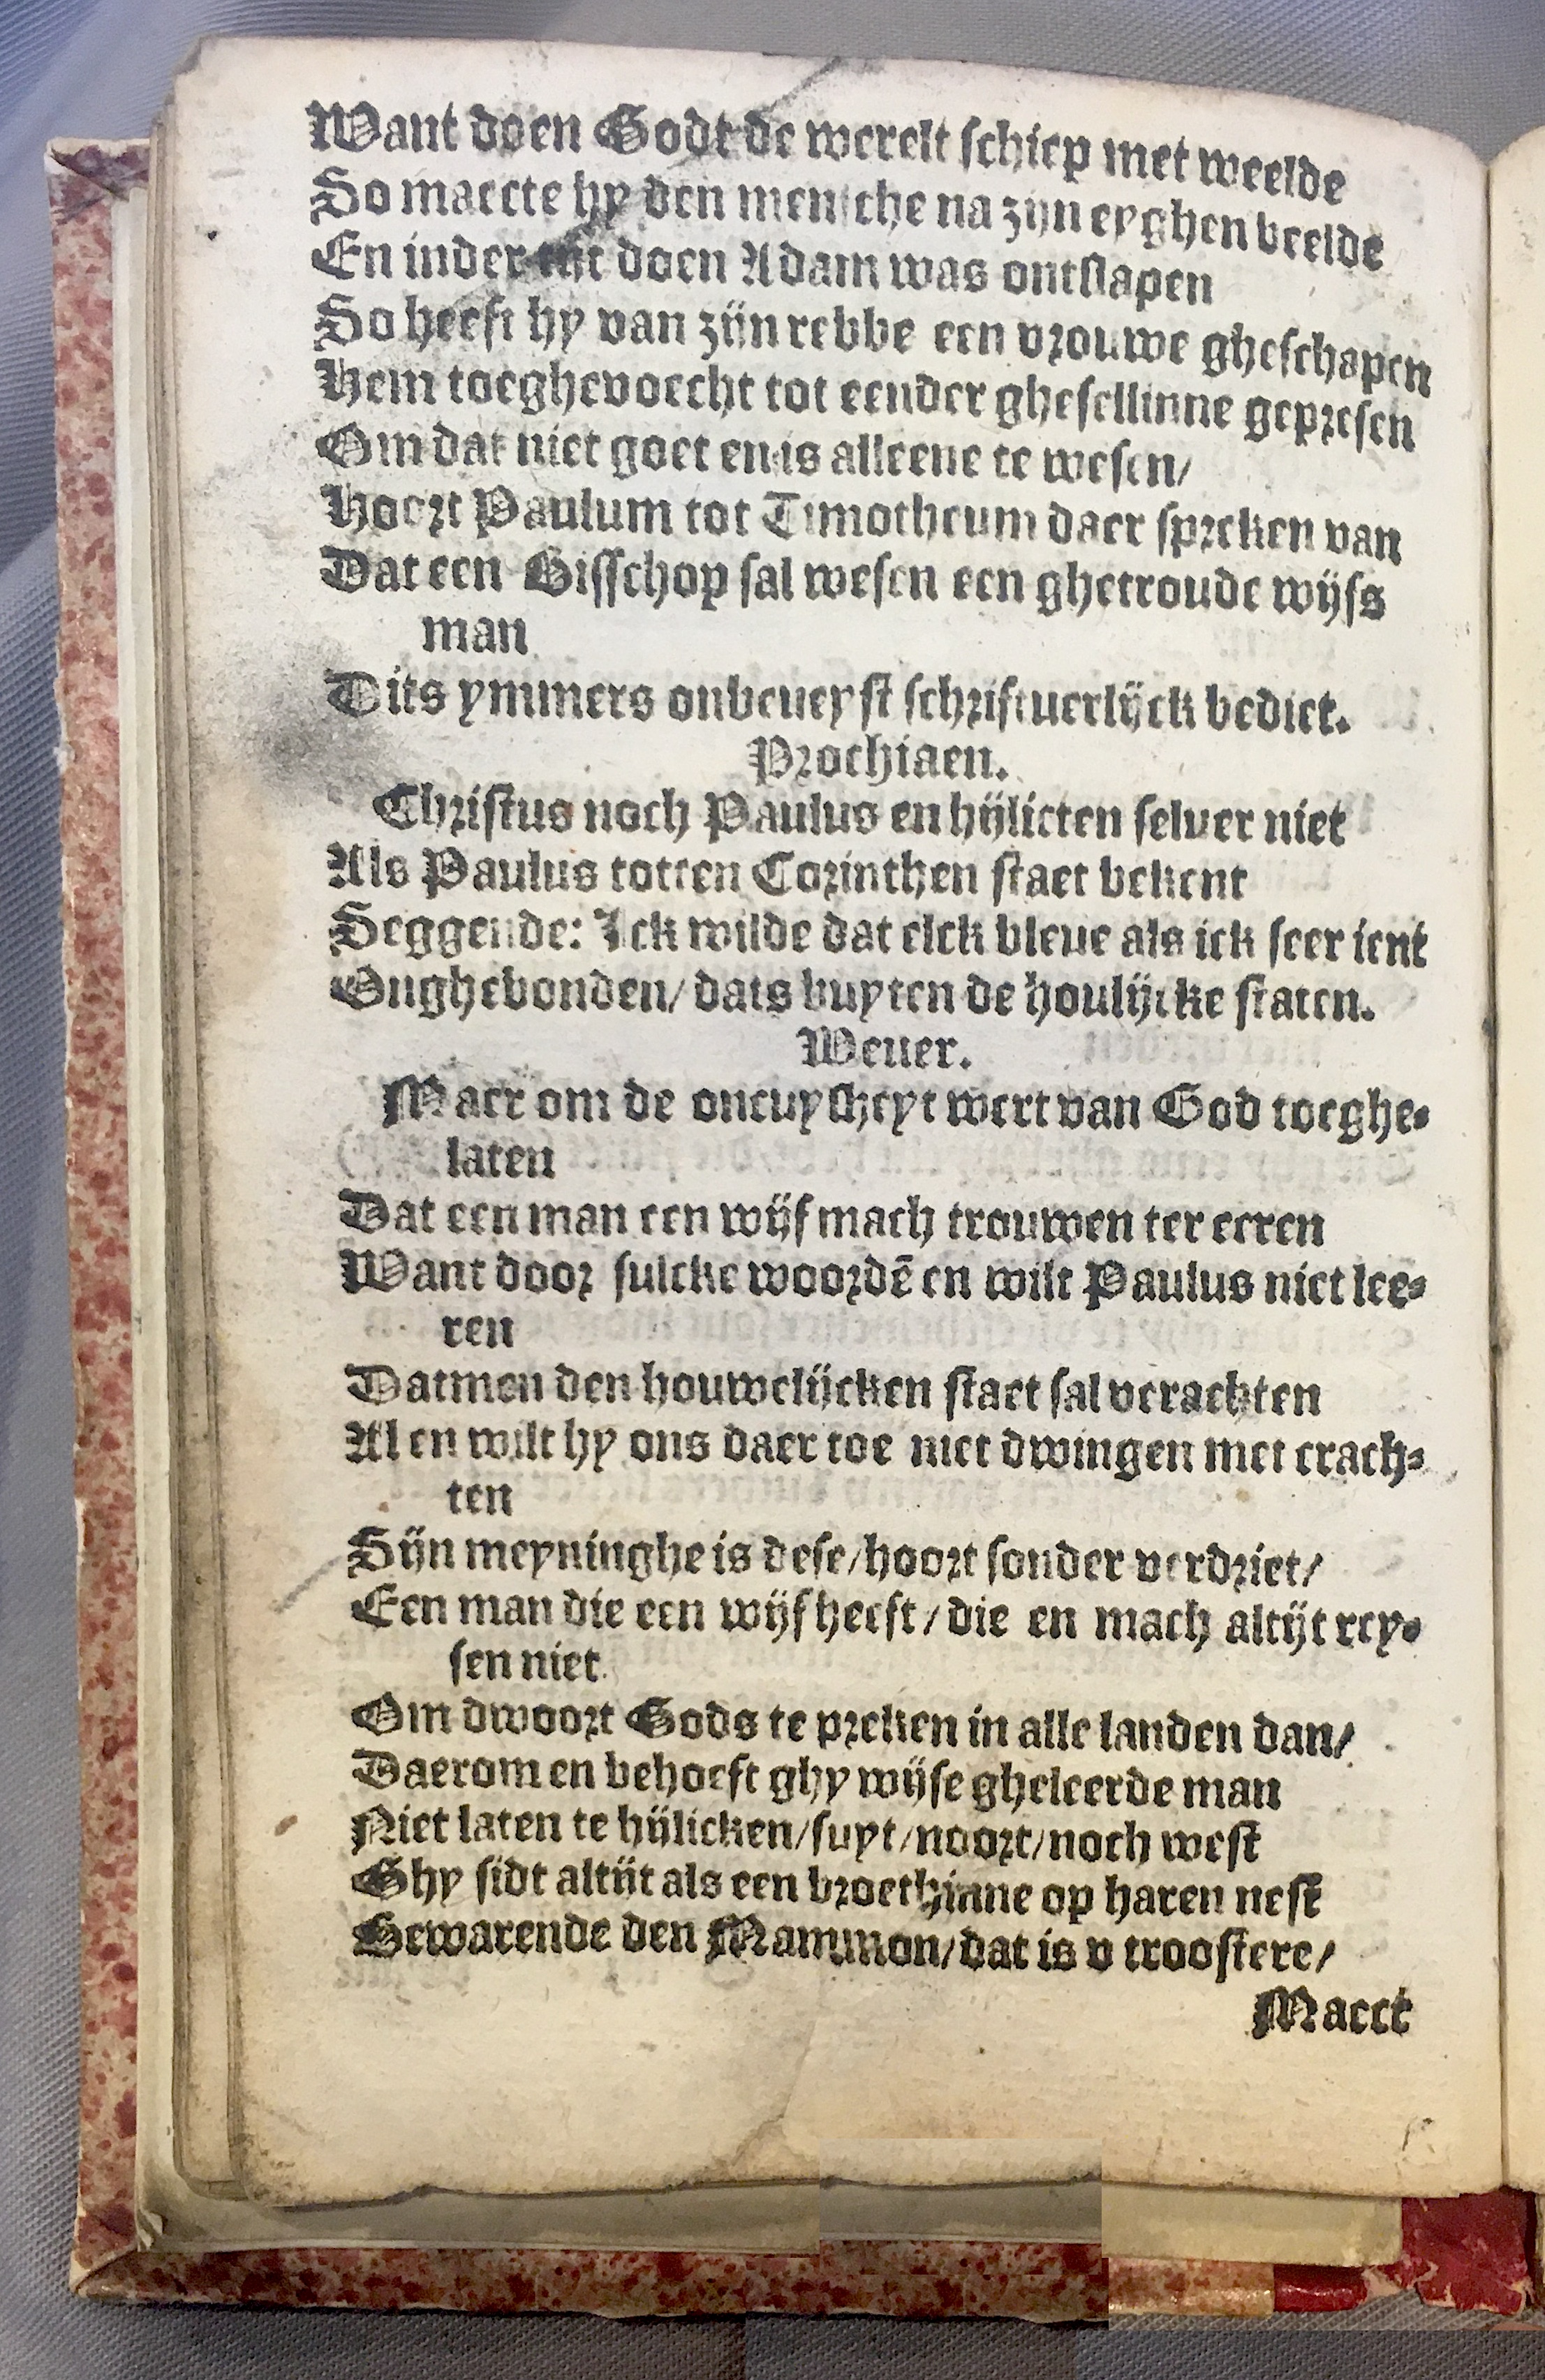 Want doen Godt de werelt schiep met weelde
So maecte hy den mensche na zijn eyghen beelde
En inder tijt doen Adam was ontslapen
So heeft hy van zijn rebbe een vrouwe gheschapen
Hem toeghevoecht tot eender ghesellinne gepresen
Om dat niet goet en is alleene te wesen/
Hoort Paulum tot Timotheum daer spreken van
Dat een Bisschop sal wesen een ghetroude wijfs
man
Dits ymmers onbeueyst schriftuerlijck bediet.
Prochiaen.
Christus noch Paulus en hijlicten selver niet
Als Paulus totten Corinthen staet bekent
Seggende: Ick wilde dat elck bleue als ick seer ient
Onghebonden/ dats buyten de houlijcke staten.
Weuer.
Maer om de oncuyscheyt wert van God toeghe-
laten
Dat een man een wijf mach trouwen ter eeren
Want door sulcke woordē en wilt Paulus niet lee-
ren
Datmen den houwelijcken staet sal verachten
Al en wilt hy ons daer toe niet dwingen met crach-
ten
Sijn meyninghe is dese/hoort sonder verdriet/
Een man die een wijf heeft/die en mach altijt rey-
sen niet
Om dwoort Gods te preken in alle landen dan/
Daerom en behoeft ghy wijse gheleerde man
Niet laten te hijlicken/suyt/noort/noch west
Ghy sidt altijt als een broethinne op haren nest
Bewarende den Mammon/dat is v troostere/
Maect